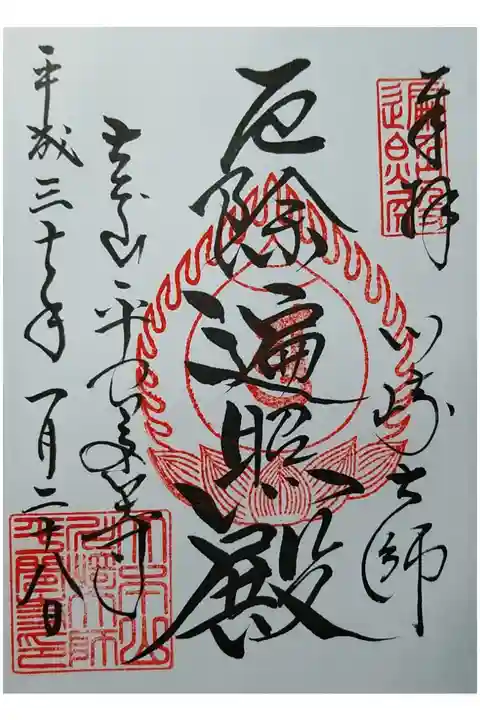 奉拝
川崎大師
厄除遍照殿
金剛山 平間寺
平成三十年一月二十八日